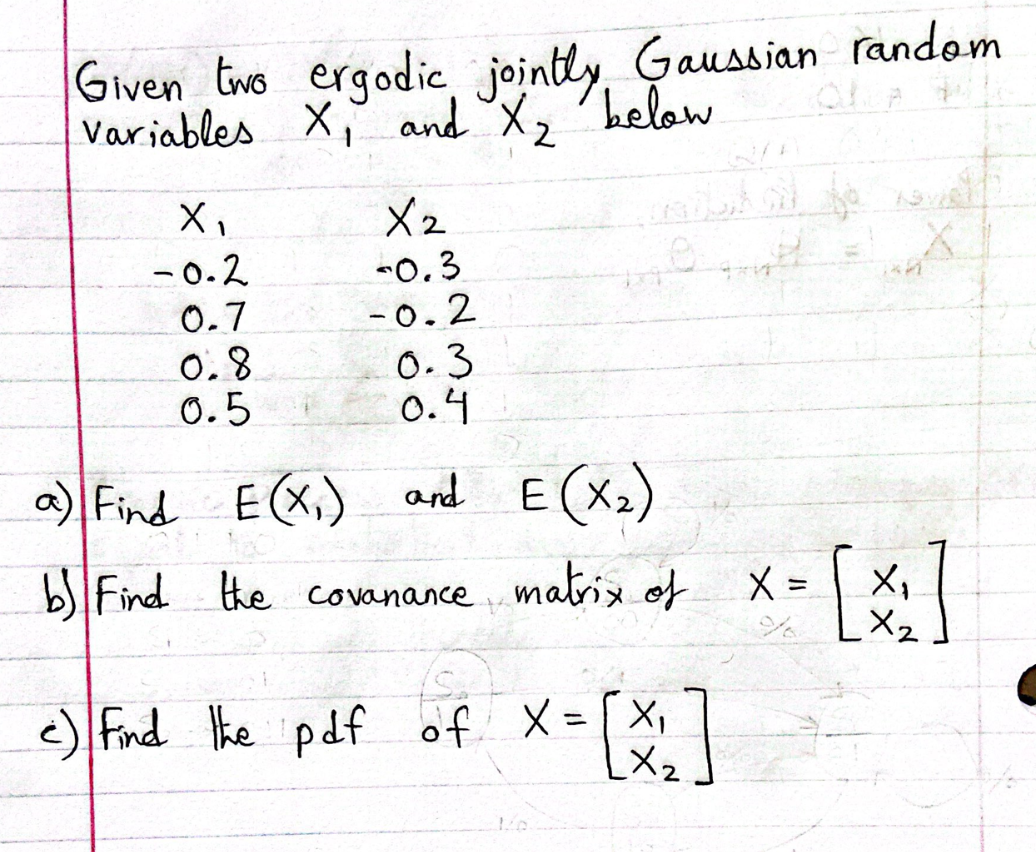 Given two ergodic jointly Gaussian random
variables X₁ and X₂ below
X₁ X₂
-0.2 -0.3
0.7 -0.2
0.8 0.3
0.5 0.4
a) Find E(X₁) and E(X₂)
b) Find the covariance matrix of X = [X₁
X₂]
c) Find the pdf of X = [X₁
X₂]